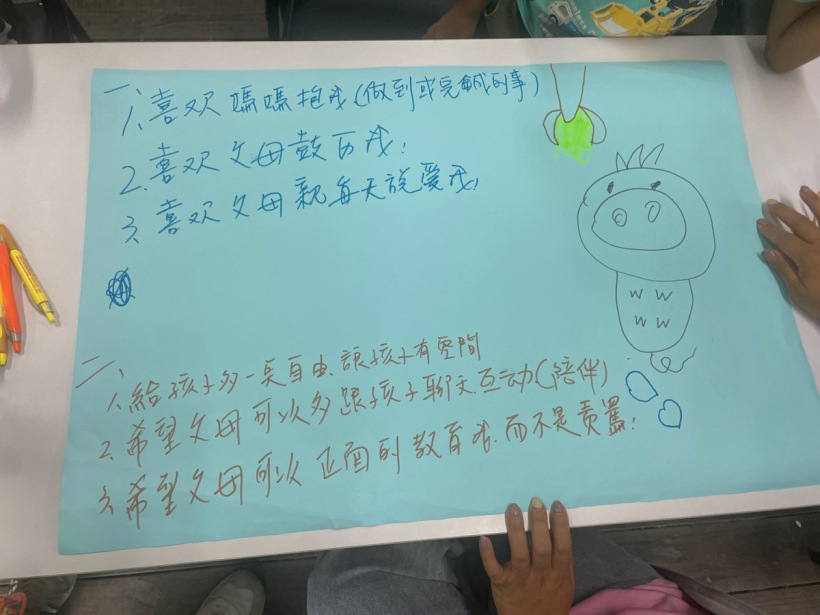 一、
1、喜欢媽媽抱我(做到或完成的事)
2、喜欢父母鼓历我；
3、喜欢父母親每天說愛我，
二、
1、給孩子多一点自由、讓孩子有空間
2、希望父母可以多跟孩子聊天、互动(陪伴)
3、希望父母可以正面的教育我、而不是責罵；
w w
w w